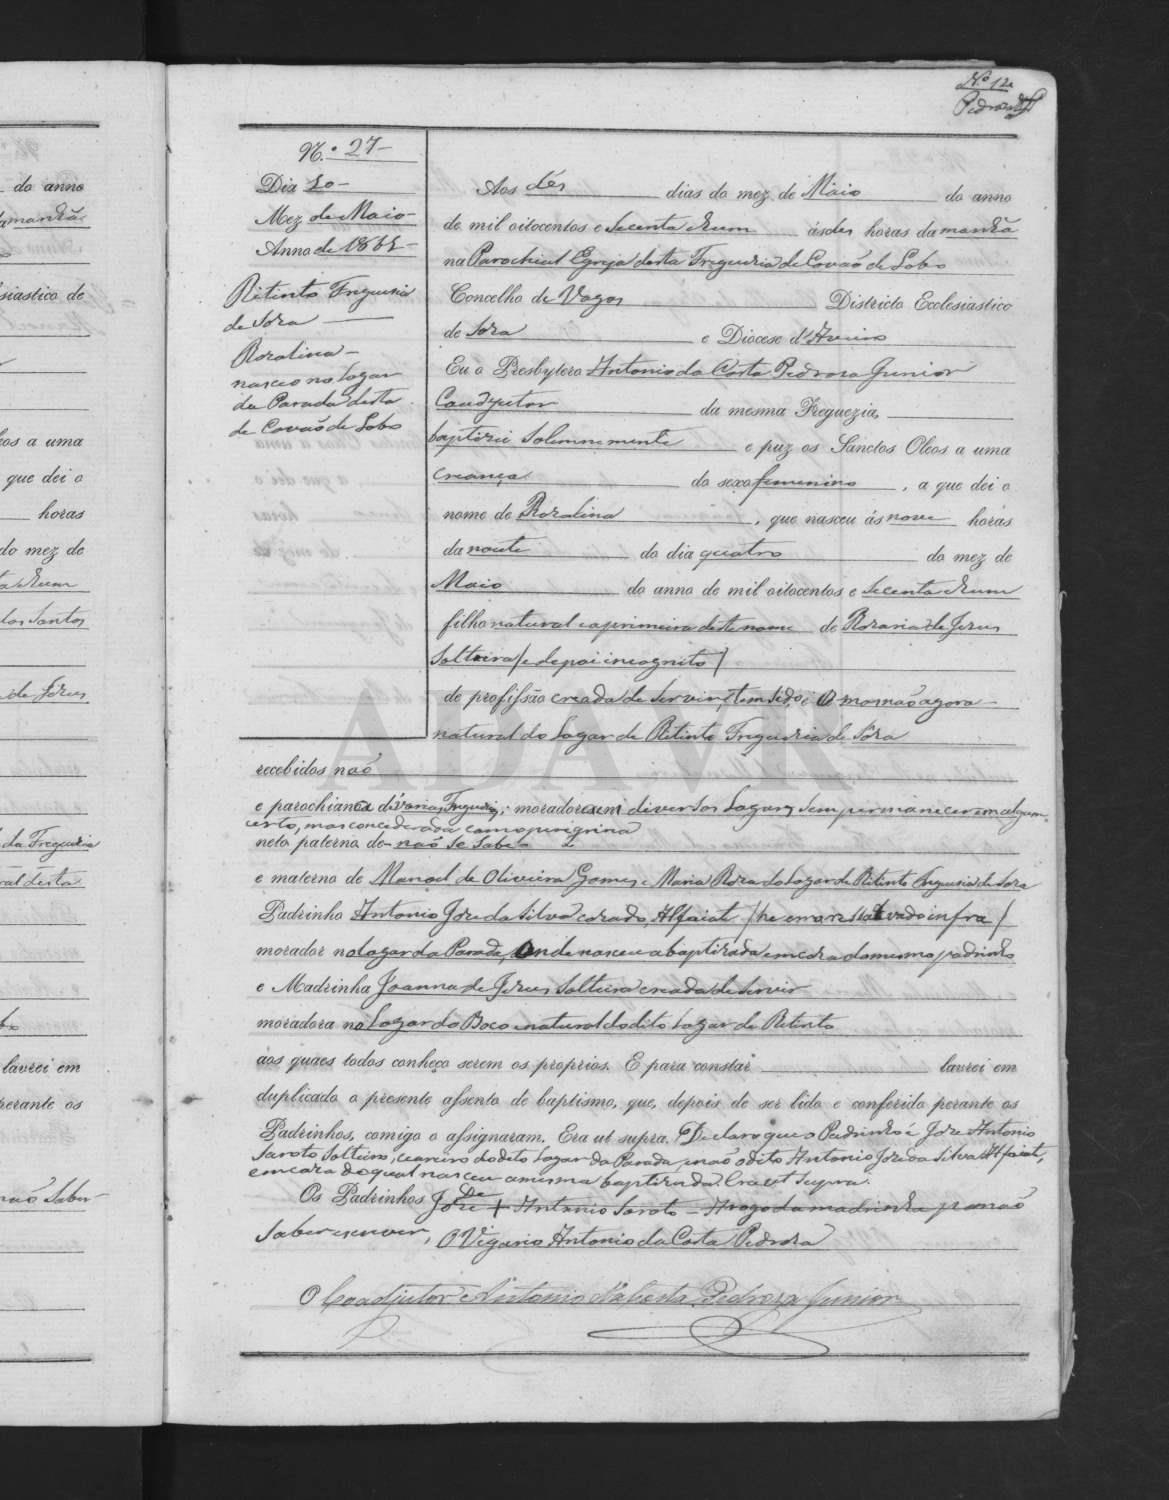 Nº 12
Pedrosa
do anno
da manhãa
siastico de
Oleos a uma
que dei o
horas
do mez de
dos Santos
de Jezus
da Freguezia
ral desta
lavrei em
perante os
não Saber
N.º 27-
Dia 10-
Mez de Maio-
Anno de 1861-
Ritinto Freguezia
de Soza
Rozalina-
nasceo no Logar
da Parada desta
de Covaõ de Lobo
Aos dés dias do mez de Maio do anno
de mil oitocentos e secenta e hum ás des horas da manhãa
na Parochial Egreja desta Freguezia de Covaõ de Lobo
Concelho de Vagos Districto Ecclesiastico
de Soza e Diocese d'Aveiro
Eu o Presbytero Antonio da Costa Pedroza Junior
Coadjutor da mesma Freguezia,
baptizei Solemnemente e puz os Sanctos Oleos a uma
creança do sexo femenino, a que dei o
nome de Rozalina, que nasceu ás nove horas
da noute do dia quatro do mez de
Maio do anno de mil oitocentos e secenta e hum
filha natural e a primeira deste nome de Rozaria de Jezus
Solteira / e de pai incognito /
de profissão creada de Servir, tem sido, mas não agora-
natural do Logar de Ritinto Freguezia de Soza
ADAVR
recebidos naõ
e parochiana de várias Freguezias, moradora em diversos Logares sem permanecer em algum
certo, mas concederada como peregrina
neta paterna de- naõ se sabe
e materna de Manoel de Oliveira Gomes e Maria Roza do Logar de Ritinto Freguezia de Soza
Padrinho Antonio Joze da Silva cazado, Alfaiat / he em o resalvado infra /
morador no Logar da Parada, Onde nasceu a baptizada em caza do mesmo padrinho
e Madrinha Joanna de Jezus Solteira creada de Servir
moradora no Logar do Boco e natural do dito Logar de Ritinto
aos quaes todos conheço serem os proprios. E para constar lavrei em
duplicado o presente assento de baptismo, que, depois de ser lido e conferido perante os
Padrinhos, comigo o assignaram. Era ut supra. Declaro que o Padrinho é Joze Antonio
Saroto Solteiro, do dito Logar da Parada, e naõ o dito Antonio Joze da Silva Alfaiat,
em caza do qual nasceu a mesma baptizada. Era ut Supra.
Os Padrinhos Joze + Antonio Saroto - A rogo da madrinha p.r naõ
Saber escrever, O Vigario Antonio da Costa Pedroza
O Coadjutor Antonio da Costa Pedroza Junior